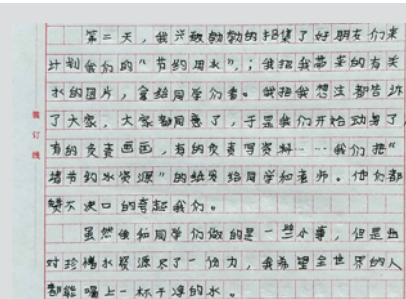 第二天，我兴致勃勃的招集了好朋友们来
计划我们的“节约用水”，；我把我带来的有关
水的图片，拿给同学们看。我把我想法都告诉
了大家，大家都同意了，于是我们开始动身了，
有的负责画画，有的负责写资料……我们把“
堵节约水资源”的纸另给同学和老师。他们都
赞不决口的夸起我们。
虽然使和同学们做的是一些小事，但是也
对珍惜水资源尽了一份力，我希望全世界的人
都能喝上一杯干净的水。
装订线